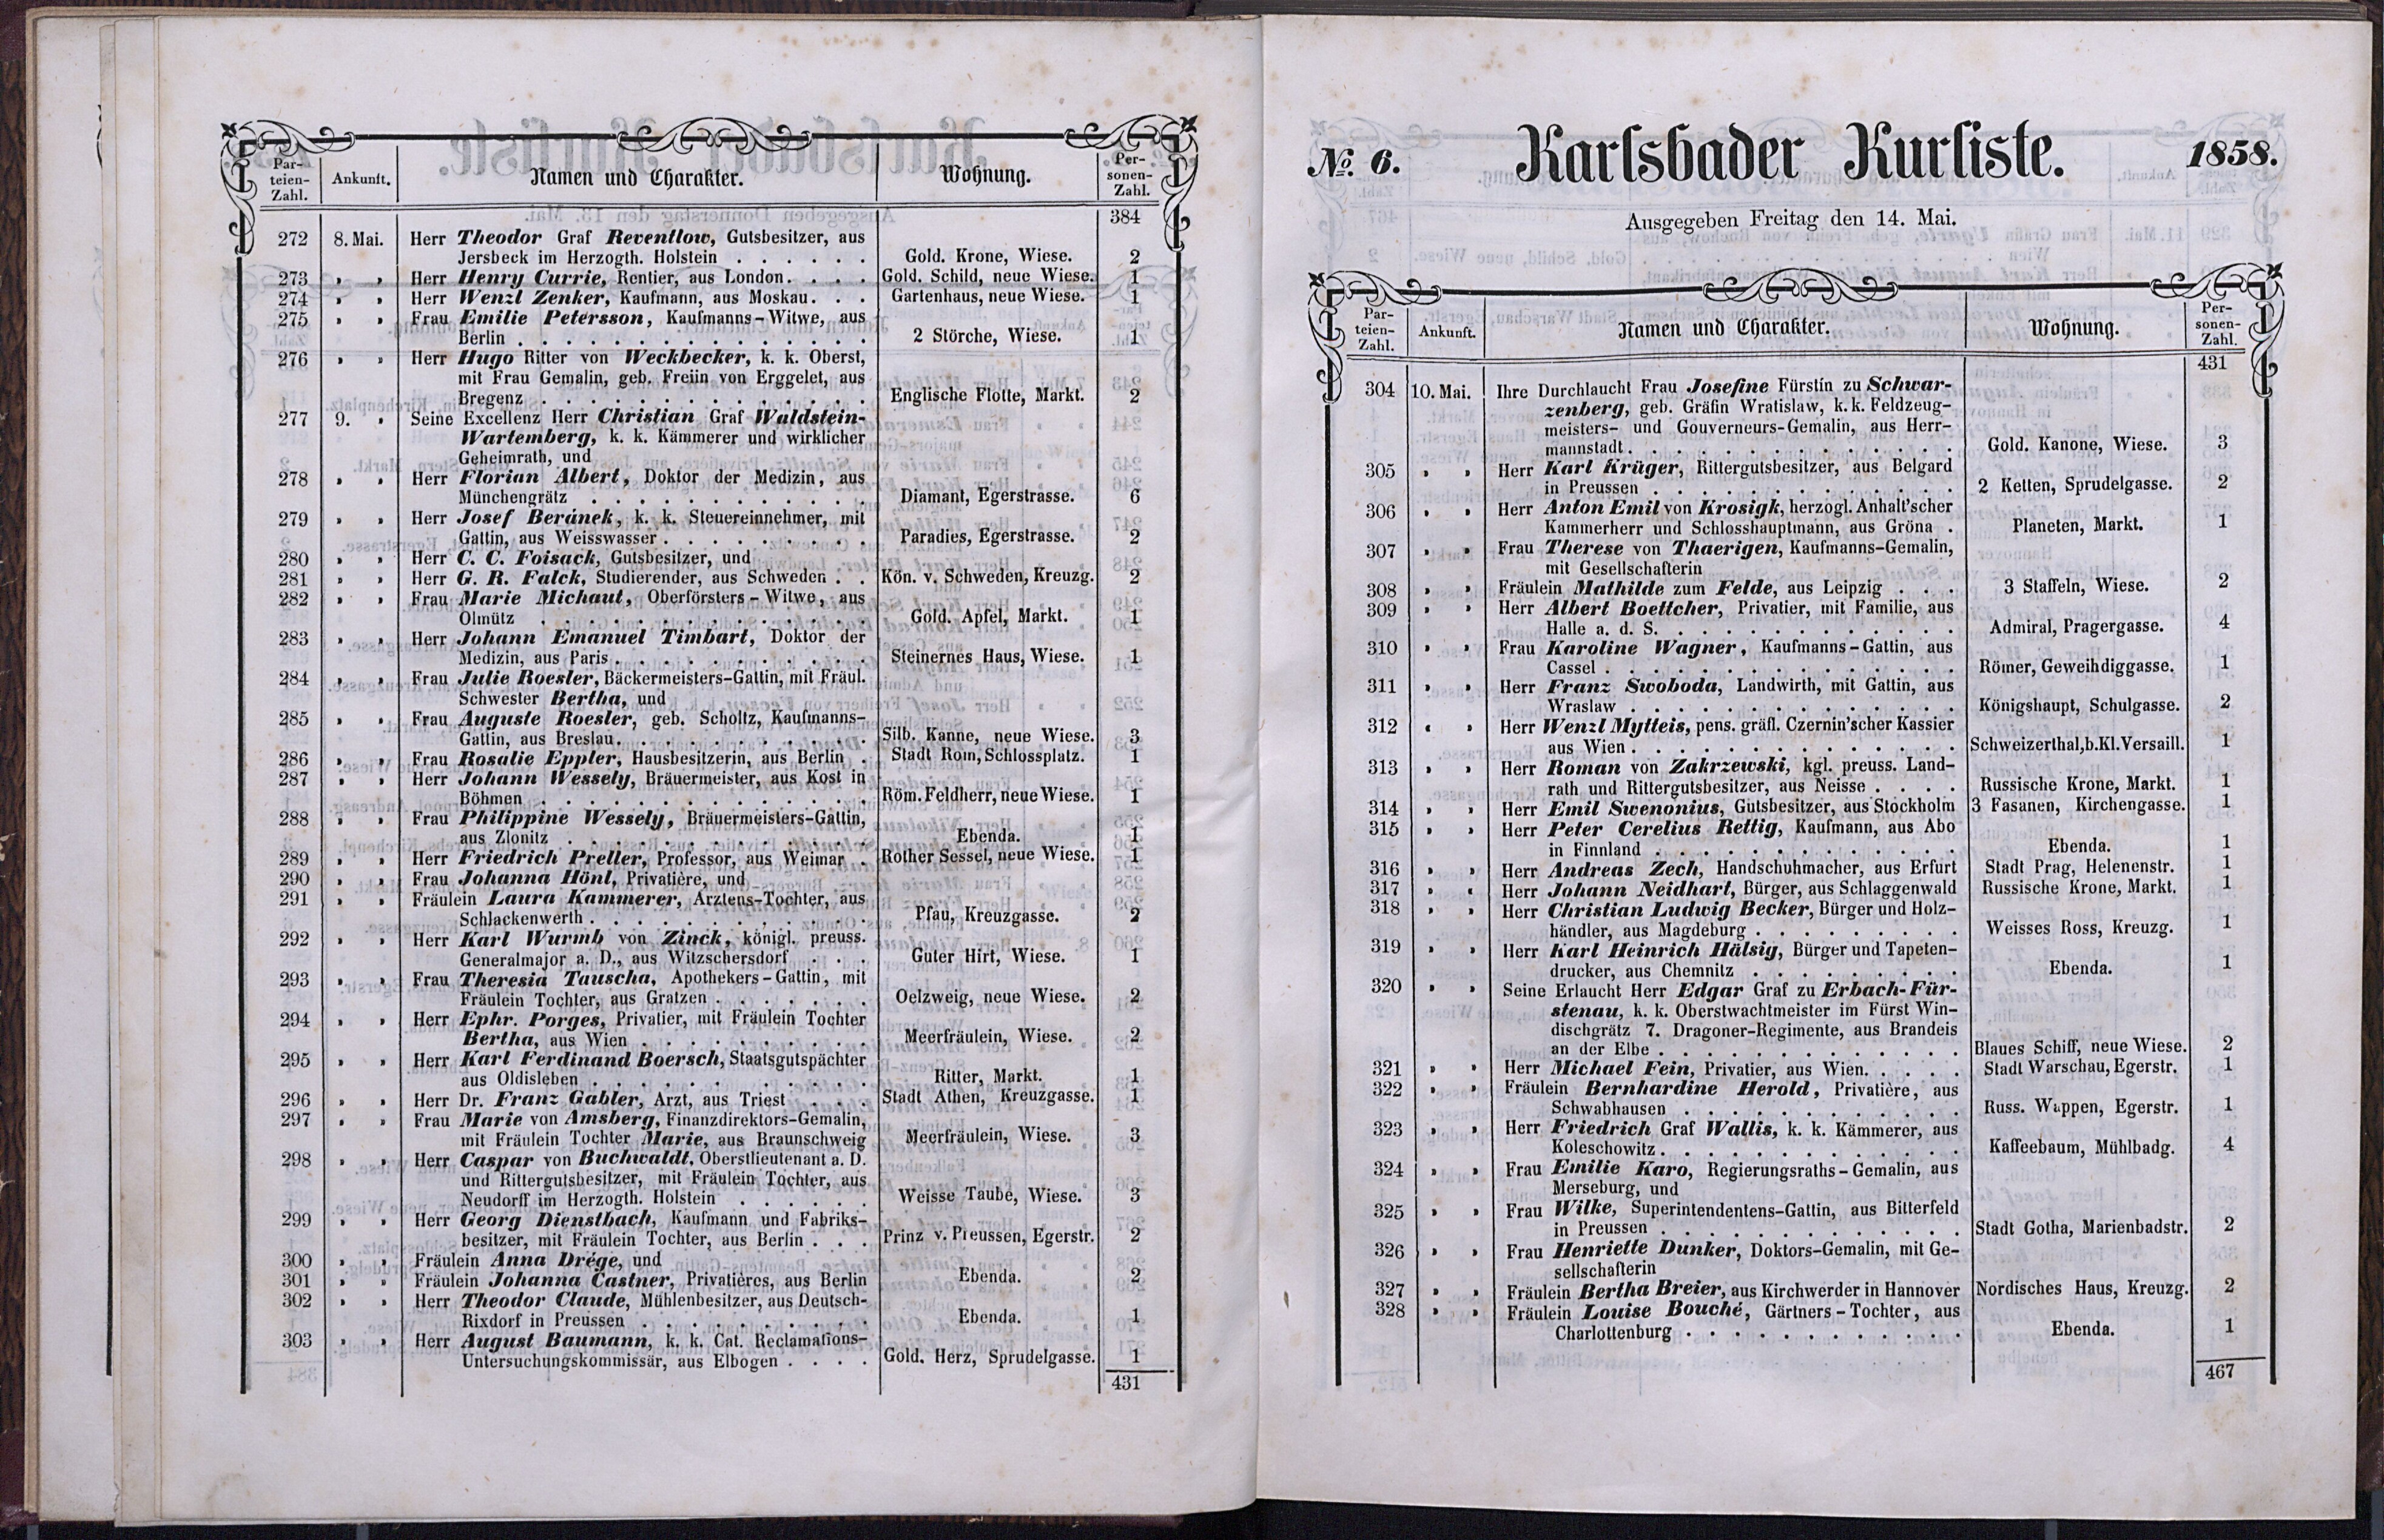 Par-
teien-
Zahl.
Ankunft.
Namen und Charakter.
Wohnung.
Per-
sonen-
Zahl.
384
272 8. Mai. Herr Theodor Graf Reventlow, Gutsbesitzer, aus
Jersbeck im Herzogth. Holstein . . . . . . Gold. Krone, Wiese. 2
273 „ „ Herr Henry Currie, Rentier, aus London. . . . Gold. Schild, neue Wiese. 1
274 „ „ Herr Wenzl Zenker, Kaufmann, aus Moskau. . . Gartenhaus, neue Wiese. 1
275 „ „ Frau Emilie Petersson, Kaufmanns-Witwe, aus
Berlin . . . . . . . . . . . . . . . . 2 Störche, Wiese. 1
276 „ „ Herr Hugo Ritter von Weckbecker, k. k. Oberst,
mit Frau Gemalin, geb. Freiin von Erggelet, aus
Bregenz . . . . . . . . . . . . . . . Englische Flotte, Markt. 2
277 9. „ Seine Excellenz Herr Christian Graf Waldstein-
Wartemberg, k. k. Kämmerer und wirklicher
Geheimrath, und
278 „ „ Herr Florian Albert, Doktor der Medizin, aus
Münchengrätz . . . . . . . . . . . . Diamant, Egerstrasse. 6
279 „ „ Herr Josef Beránek, k. k. Steuereinnehmer, mit
Gattin, aus Weisswasser . . . . . . . . . Paradies, Egerstrasse. 2
280 „ „ Herr C. C. Foisack, Gutsbesitzer, und
281 „ „ Herr G. R. Falck, Studierender, aus Schweden . . Kön. v. Schweden, Kreuzg. 2
282 „ „ Frau Marie Michaut, Oberförsters-Witwe, aus
Olmütz . . . . . . . . . . . . . . . Gold. Apfel, Markt. 1
283 „ „ Herr Johann Emanuel Timbart, Doktor der
Medizin, aus Paris . . . . . . . . . . . Steinernes Haus, Wiese. 1
284 „ „ Frau Julie Roesler, Bäckermeisters-Gattin, mit Fräul.
Schwester Bertha, und
285 „ „ Frau Auguste Roesler, geb. Scholtz, Kaufmanns-
Gattin, aus Breslau. . . . . . . . . . . Silb. Kanne, neue Wiese. 3
286 „ „ Frau Rosalie Eppler, Hausbesitzerin, aus Berlin . Stadt Rom, Schlossplatz. 1
287 „ „ Herr Johann Wessely, Bräuermeister, aus Kost in
Böhmen . . . . . . . . . . . . . . . Röm. Feldherr, neue Wiese. 1
288 „ „ Frau Philippine Wessely, Bräuermeisters-Gattin,
aus Zlonitz . . . . . . . . . . . . . . Ebenda. 1
289 „ „ Herr Friedrich Preller, Professor, aus Weimar . Rother Sessel, neue Wiese. 1
290 „ „ Frau Johanna Hönl, Privatière, und
291 „ „ Fräulein Laura Kammerer, Arztens-Tochter, aus
Schlackenwerth . . . . . . . . . . . . Pfau, Kreuzgasse. 2
292 „ „ Herr Karl Wurmb von Zinck, königl. preuss.
Generalmajor a. D., aus Witzschersdorf . . . Guter Hirt, Wiese. 1
293 „ „ Frau Theresia Tauscha, Apothekers-Gattin, mit
Fräulein Tochter, aus Gratzen . . . . . . . Oelzweig, neue Wiese. 2
294 „ „ Herr Ephr. Porges, Privatier, mit Fräulein Tochter
Bertha, aus Wien . . . . . . . . . . Meerfräulein, Wiese. 2
295 „ „ Herr Karl Ferdinand Boersch, Staatsgutspächter
aus Oldisleben . . . . . . . . . . . . . Ritter, Markt. 1
296 „ „ Herr Dr. Franz Gabler, Arzt, aus Triest . . . Stadt Athen, Kreuzgasse. 1
297 „ „ Frau Marie von Amsberg, Finanzdirektors-Gemalin,
mit Fräulein Tochter Marie, aus Braunschweig Meerfräulein, Wiese. 3
298 „ „ Herr Caspar von Buchwaldt, Oberstlieutenant a. D.
und Rittergutsbesitzer, mit Fräulein Tochter, aus
Neudorff im Herzogth. Holstein . . . . . . Weisse Taube, Wiese. 3
299 „ „ Herr Georg Dienstbach, Kaufmann und Fabriks-
besitzer, mit Fräulein Tochter, aus Berlin . . . Prinz v. Preussen, Egerstr. 2
300 „ „ Fräulein Anna Drége, und
301 „ „ Fräulein Johanna Castner, Privatières, aus Berlin Ebenda. 2
302 „ „ Herr Theodor Claude, Mühlenbesitzer, aus Deutsch-
Rixdorf in Preussen . . . . . . . . . . Ebenda. 1
303 „ „ Herr August Baumann, k. k. Cat. Reclamations-
Untersuchungskommissär, aus Elbogen . . . . Gold. Herz, Sprudelgasse. 1
431
No. 6. Karlsbader Kurliste. 1858.
Ausgegeben Freitag den 14. Mai.
Par-
teien-
Zahl.
Ankunft.
Namen und Charakter.
Wohnung.
Per-
sonen-
Zahl.
431
304 10. Mai. Ihre Durchlaucht Frau Josefine Fürstin zu Schwar-
zenberg, geb. Gräfin Wratislaw, k. k. Feldzeug-
meisters- und Gouverneurs-Gemalin, aus Herr-
mannstadt . . . . . . . . . . . . . . Gold. Kanone, Wiese. 3
305 „ „ Herr Karl Krüger, Rittergutsbesitzer, aus Belgard
in Preussen . . . . . . . . . . . . . 2 Ketten, Sprudelgasse. 2
306 „ „ Herr Anton Emil von Krosigk, herzogl. Anhalt'scher
Kammerherr und Schlosshauptmann, aus Gröna . Planeten, Markt. 1
307 „ „ Frau Therese von Thaerigen, Kaufmanns-Gemalin,
mit Gesellschafterin
308 „ „ Fräulein Mathilde zum Felde, aus Leipzig . . . 3 Staffeln, Wiese. 2
309 „ „ Herr Albert Boettcher, Privatier, mit Familie, aus
Halle a. d. S. . . . . . . . . . . . . . Admiral, Pragergasse. 4
310 „ „ Frau Karoline Wagner, Kaufmanns-Gattin, aus
Cassel . . . . . . . . . . . . . . . . Römer, Geweihdiggasse. 1
311 „ „ Herr Franz Swoboda, Landwirth, mit Gattin, aus
Wraslaw . . . . . . . . . . . . . . . Königshaupt, Schulgasse. 2
312 „ „ Herr Wenzl Mytteis, pens. gräfl. Czernin'scher Kassier
aus Wien . . . . . . . . . . . . . . . Schweizerthal, b. Kl. Versaill. 1
313 „ „ Herr Roman von Zakrzewski, kgl. preuss. Land-
rath und Rittergutsbesitzer, aus Neisse . . . . Russische Krone, Markt. 1
314 „ „ Herr Emil Swenonius, Gutsbesitzer, aus Stockholm 3 Fasanen, Kirchengasse. 1
315 „ „ Herr Peter Cerelius Rettig, Kaufmann, aus Abo
in Finnland . . . . . . . . . . . . . Ebenda. 1
316 „ „ Herr Andreas Zech, Handschuhmacher, aus Erfurt Stadt Prag, Helenenstr. 1
317 „ „ Herr Johann Neidhart, Bürger, aus Schlaggenwald Russische Krone, Markt. 1
318 „ „ Herr Christian Ludwig Becker, Bürger und Holz-
händler, aus Magdeburg . . . . . . . . . Weisses Ross, Kreuzg. 1
319 „ „ Herr Karl Heinrich Hälsig, Bürger und Tapeten-
drucker, aus Chemnitz . . . . . . . . . Ebenda. 1
320 „ „ Seine Erlaucht Herr Edgar Graf zu Erbach-Für-
stenau, k. k. Oberstwachtmeister im Fürst Win-
dischgrätz 7. Dragoner-Regimente, aus Brandeis
an der Elbe . . . . . . . . . . . . . Blaues Schiff, neue Wiese. 2
321 „ „ Herr Michael Fein, Privatier, aus Wien. . . . . Stadt Warschau, Egerstr. 1
322 „ „ Fräulein Bernhardine Herold, Privatière, aus
Schwabhausen . . . . . . . . . . . . Russ. Wappen, Egerstr. 1
323 „ „ Herr Friedrich Graf Wallis, k. k. Kämmerer, aus
Koleschowitz . . . . . . . . . . . . . Kaffeebaum, Mühlbadg. 4
324 „ „ Frau Emilie Karo, Regierungsraths-Gemalin, aus
Merseburg, und
325 „ „ Frau Wilke, Superintendentens-Gattin, aus Bitterfeld
in Preussen . . . . . . . . . . . . . Stadt Gotha, Marienbadstr. 2
326 „ „ Frau Henriette Dunker, Doktors-Gemalin, mit Ge-
sellschafterin
327 „ „ Fräulein Bertha Breier, aus Kirchwerder in Hannover Nordisches Haus, Kreuzg. 2
328 „ „ Fräulein Louise Bouché, Gärtners-Tochter, aus
Charlottenburg . . . . . . . . . . . . Ebenda. 1
467